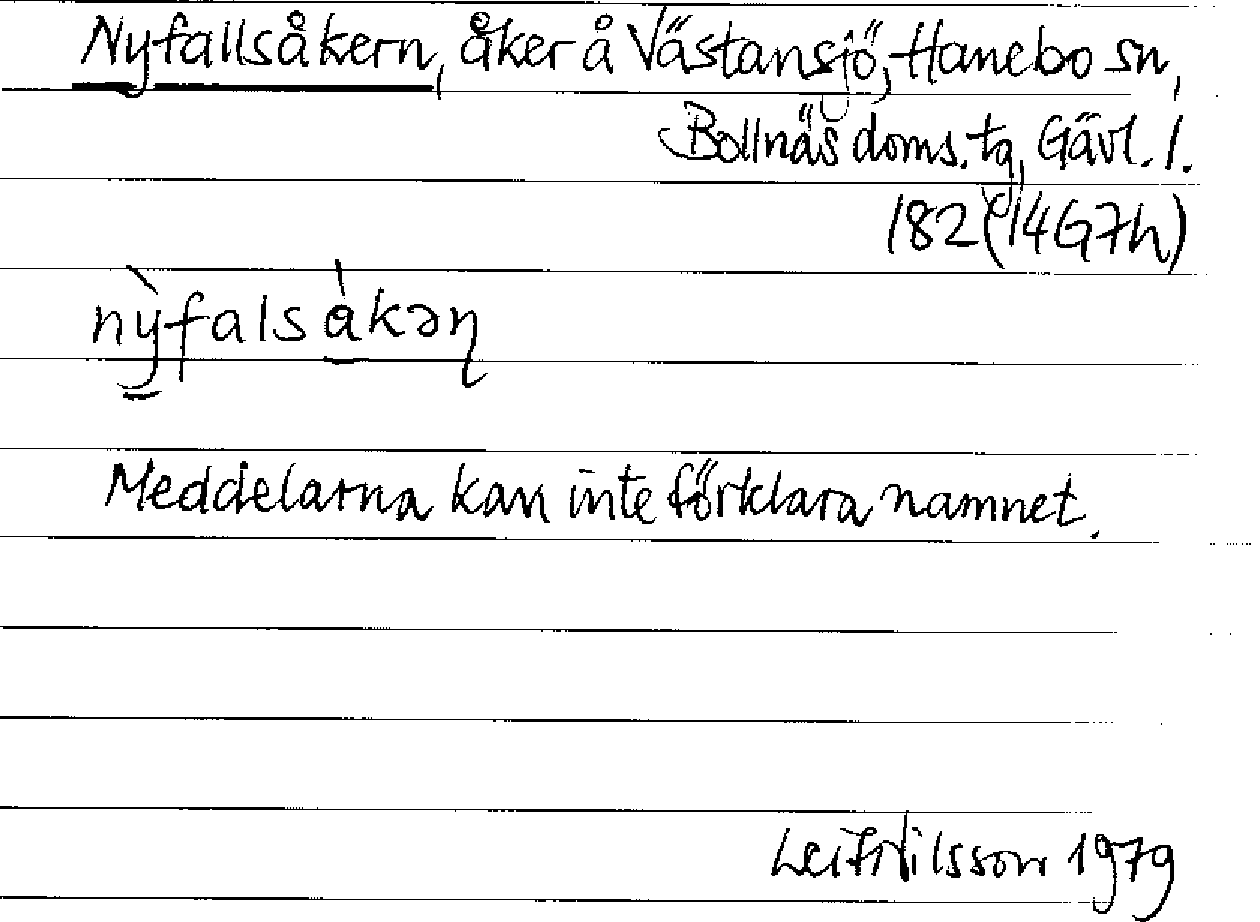 Nyfallsåkern, åker å Västansjö, Hanebo sn,
Bollnäs doms. tg, Gävl. l.
182 (14G7h)
nỳfalsàkəɳ
Meddelarna kan inte förklara namnet.
Leif Nilsson 1979